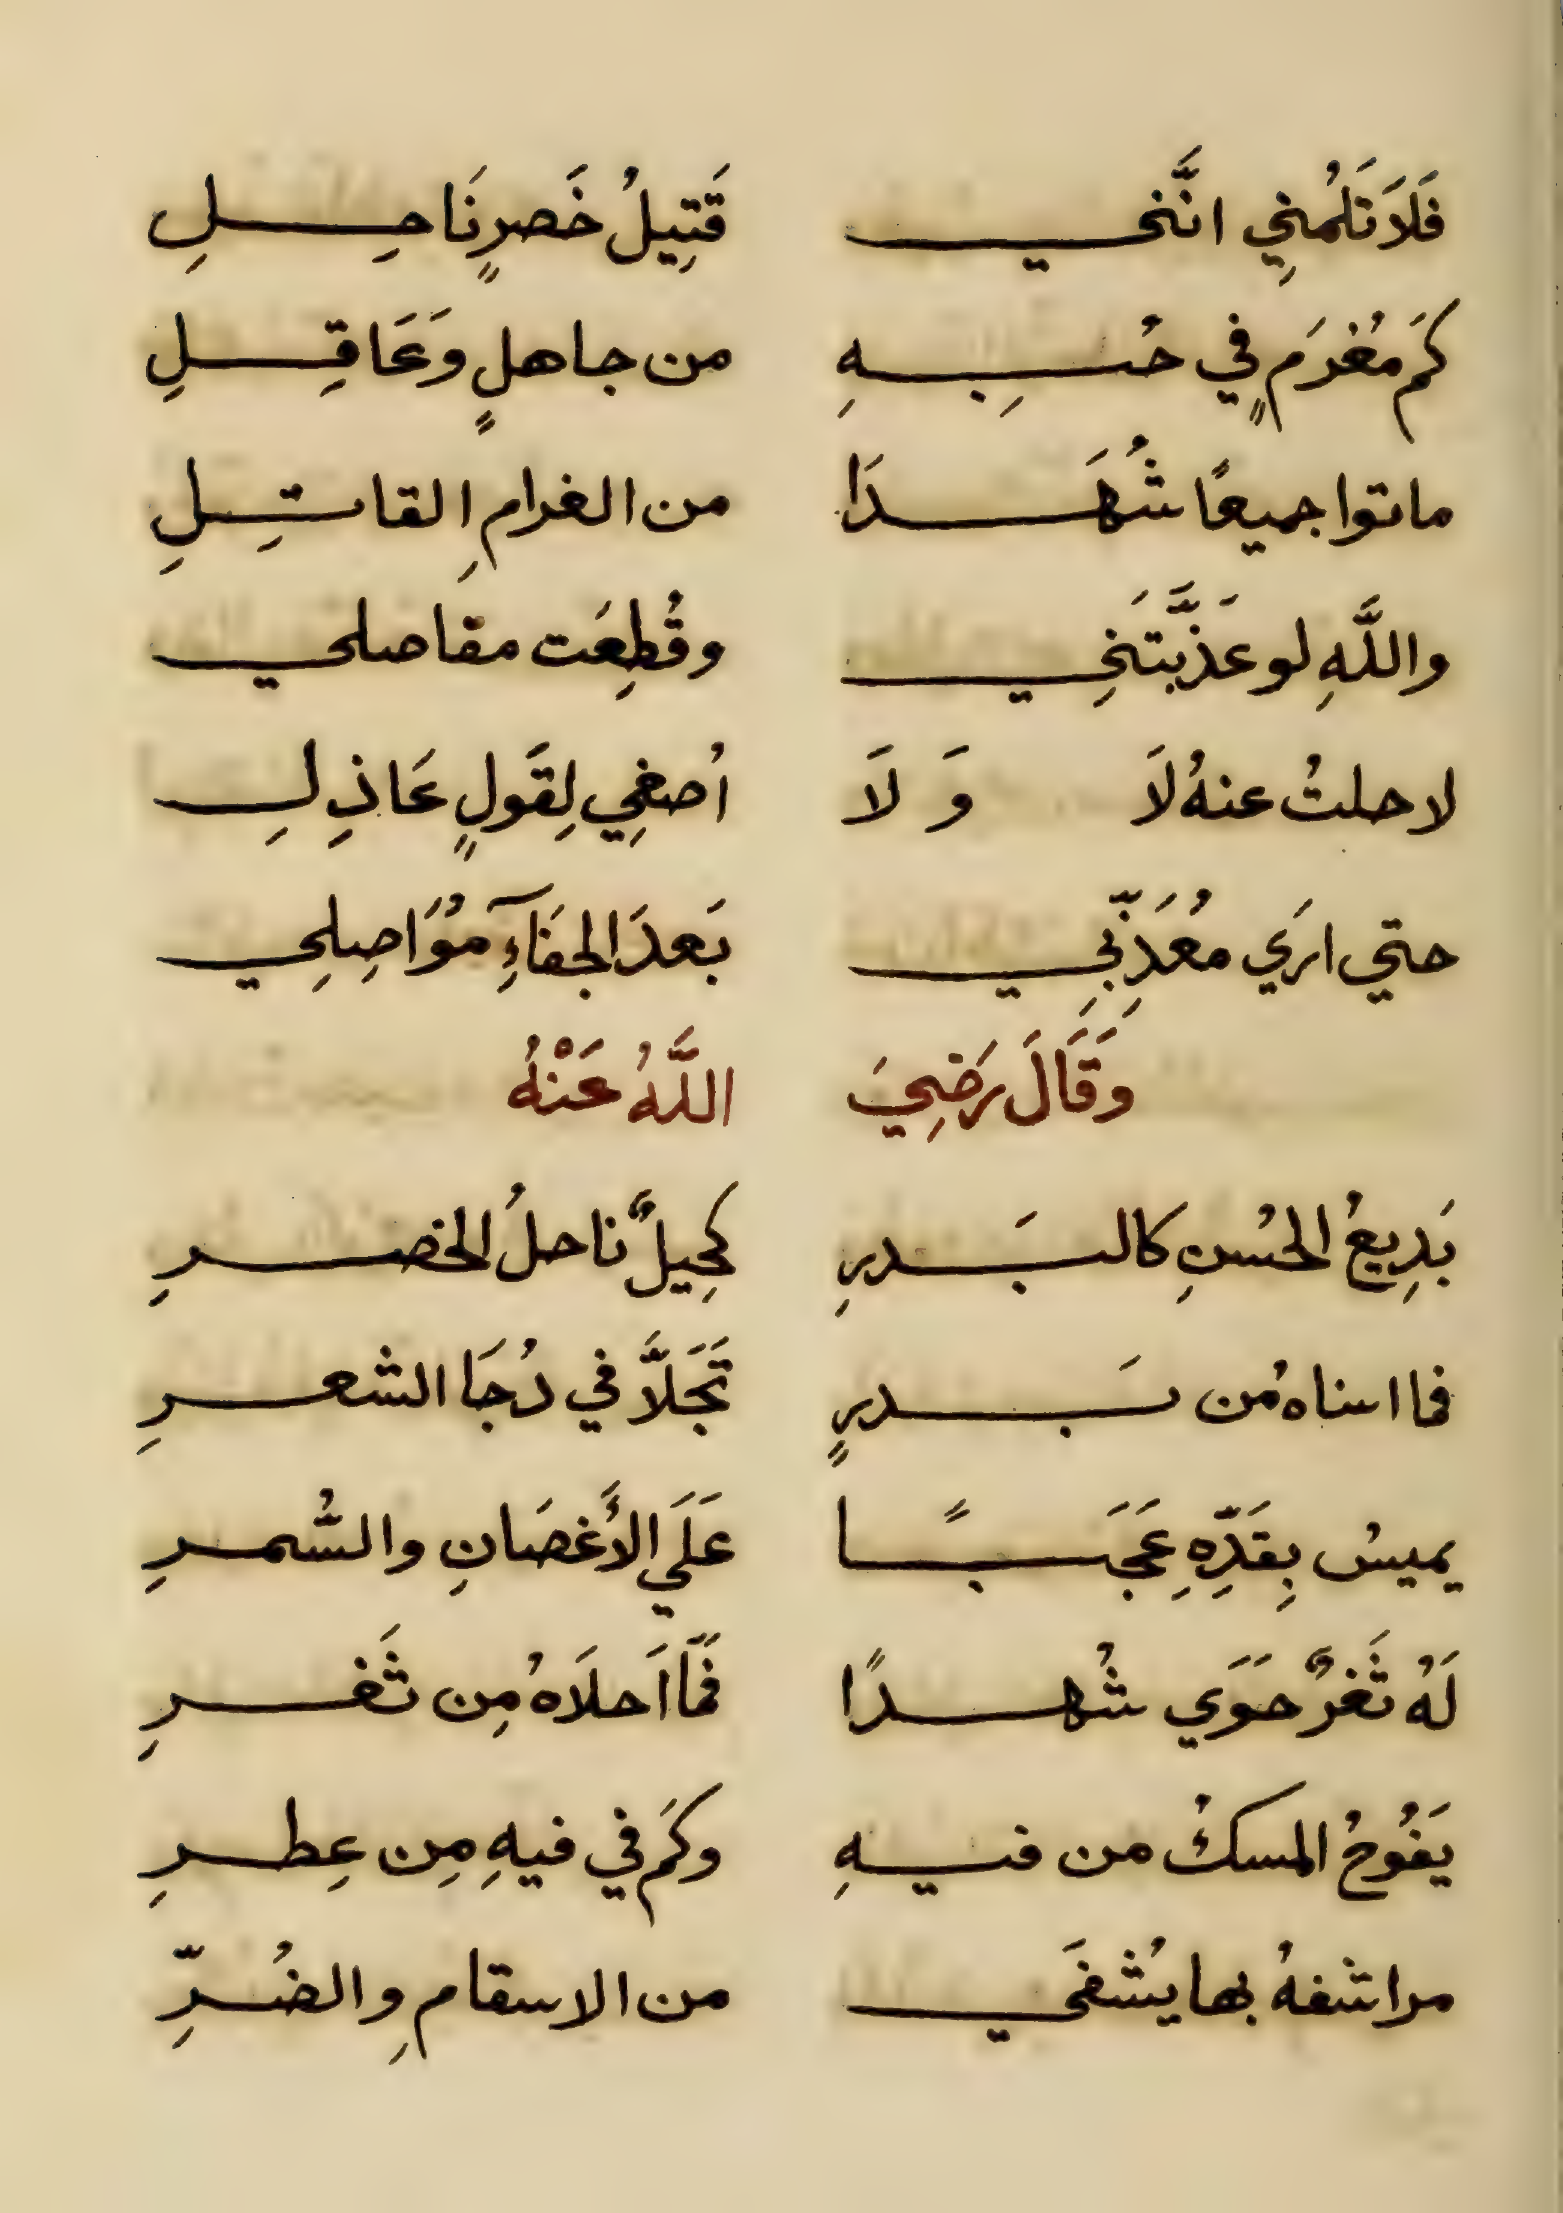 فَلَا تَلُمْنِي انَّني قَتِيلُ خَصرٍ نَاحِلِ
كَم مُغرَمٍ في حُبِهِ من جاهلٍ وَعَاقِلِ
ماتوا جميعًا شُهَدَا من الغرامِ القاتِلِ
واللَّهِ لو عَذَّبتَنِي وقُطِعَت مفاصلي
لا حلتُ عنهُ لَا وَلَا أُصغِي لِقَولٍ عَاذِلِ
حتي ارَي مُعَذِّبِي بَعدَ الجفَآءِ مُوَاصِلِي
وَقَالَ رَضِيَ اللَّهُ عَنْهُ
بَدِيعُ الحُسنِ كالبَدرِ كحِيلٌ ناحلُ الخصرِ
فما اسناهُ من بَدرٍ تَجَلَّا في دُجَا الشعرِ
يميسُ بِقَدِّهِ عَجَبًا عَلَي الأَغصَانِ والسُّمرِ
لَهُ ثَغرٌ حَوَي شُهدًا فَمَا اَحلَاهُ مِن ثَغرِ
يَفُوحُ المسكُ من فيهِ وكَم في فيهِ مِن عِطرِ
مراشفهُ بها يُشفَي من الاسقامِ والضُرِّ